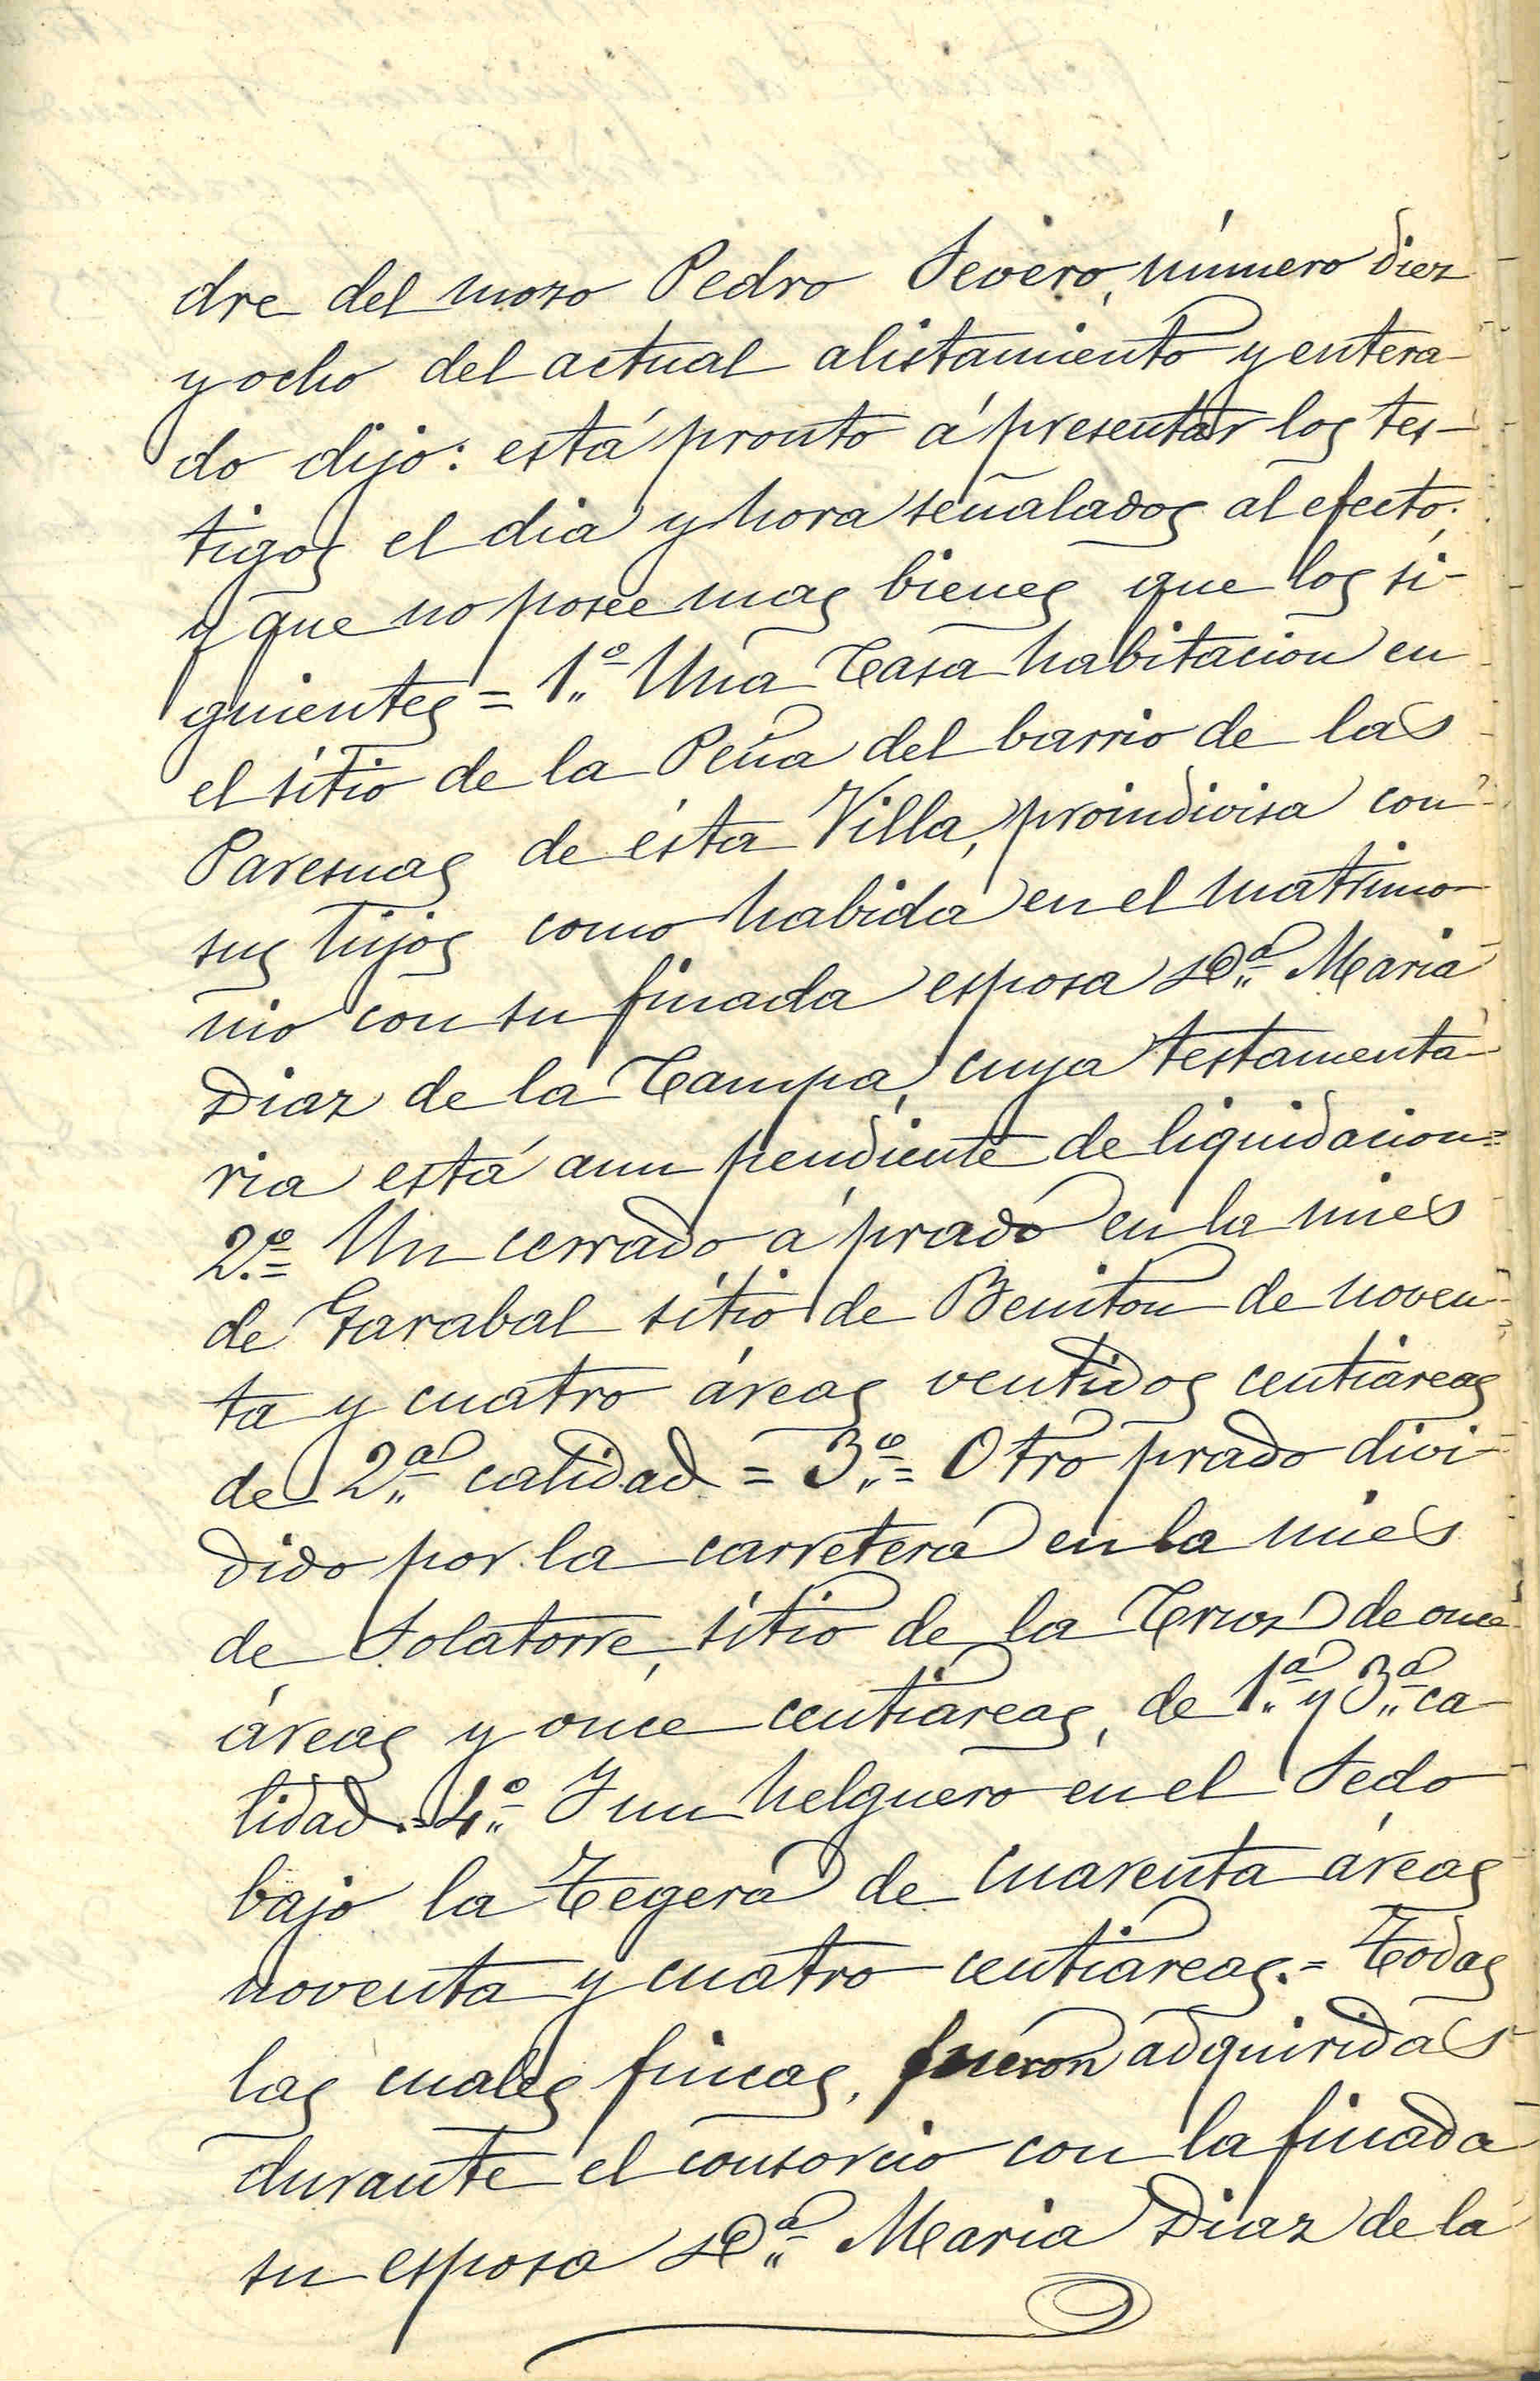 dre del mozo Pedro Severo, número diez
y ocho del actual alistamiento y entera-
do dijo: está pronto á presentar los tes-
tigos el dia y hora señalados al efecto;
y que no posee mas bienes que los si-
guientes = 1.º Una Casa habitacion en
el sitio de la Peña del barrio de las
Paresuas de ésta Villa, proindivisa con
sus hijos como habida en el matrimo-
nio con su finada esposa D.ª Maria
Diaz de la Campa, cuya testamenta-
ria está aun pendiente de liquidacion=
2.º= Un cerrado á prado en la mies
de Garabal sitio de Beniton de noven-
ta y cuatro áreas ventidos centiáreas
de 2.ª calidad = 3.º= Otro prado divi-
dido por la carretera en la mies
de Solatorre, sitio de la Cruz de once
áreas y once centiáreas, de 1.ª y 3.ª ca-
lidad.= 4.º Y un helguero en el Sedo
bajo la Tegera de cuarenta áreas
noventa y cuatro centiáreas.= Todas
las cuales fincas, fueron adquiridas
durante el consorcio con la finada
su esposa D.ª Maria Diaz de la